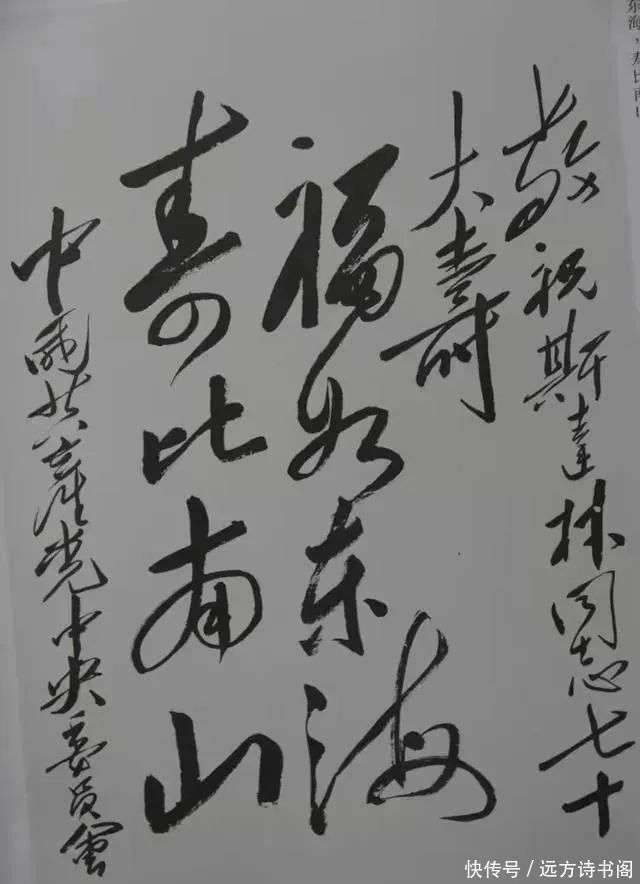 敬祝斯達林同志七十
大壽
福如东海
寿比南山
中國共產党中央委員會
快传号／远方诗书阁